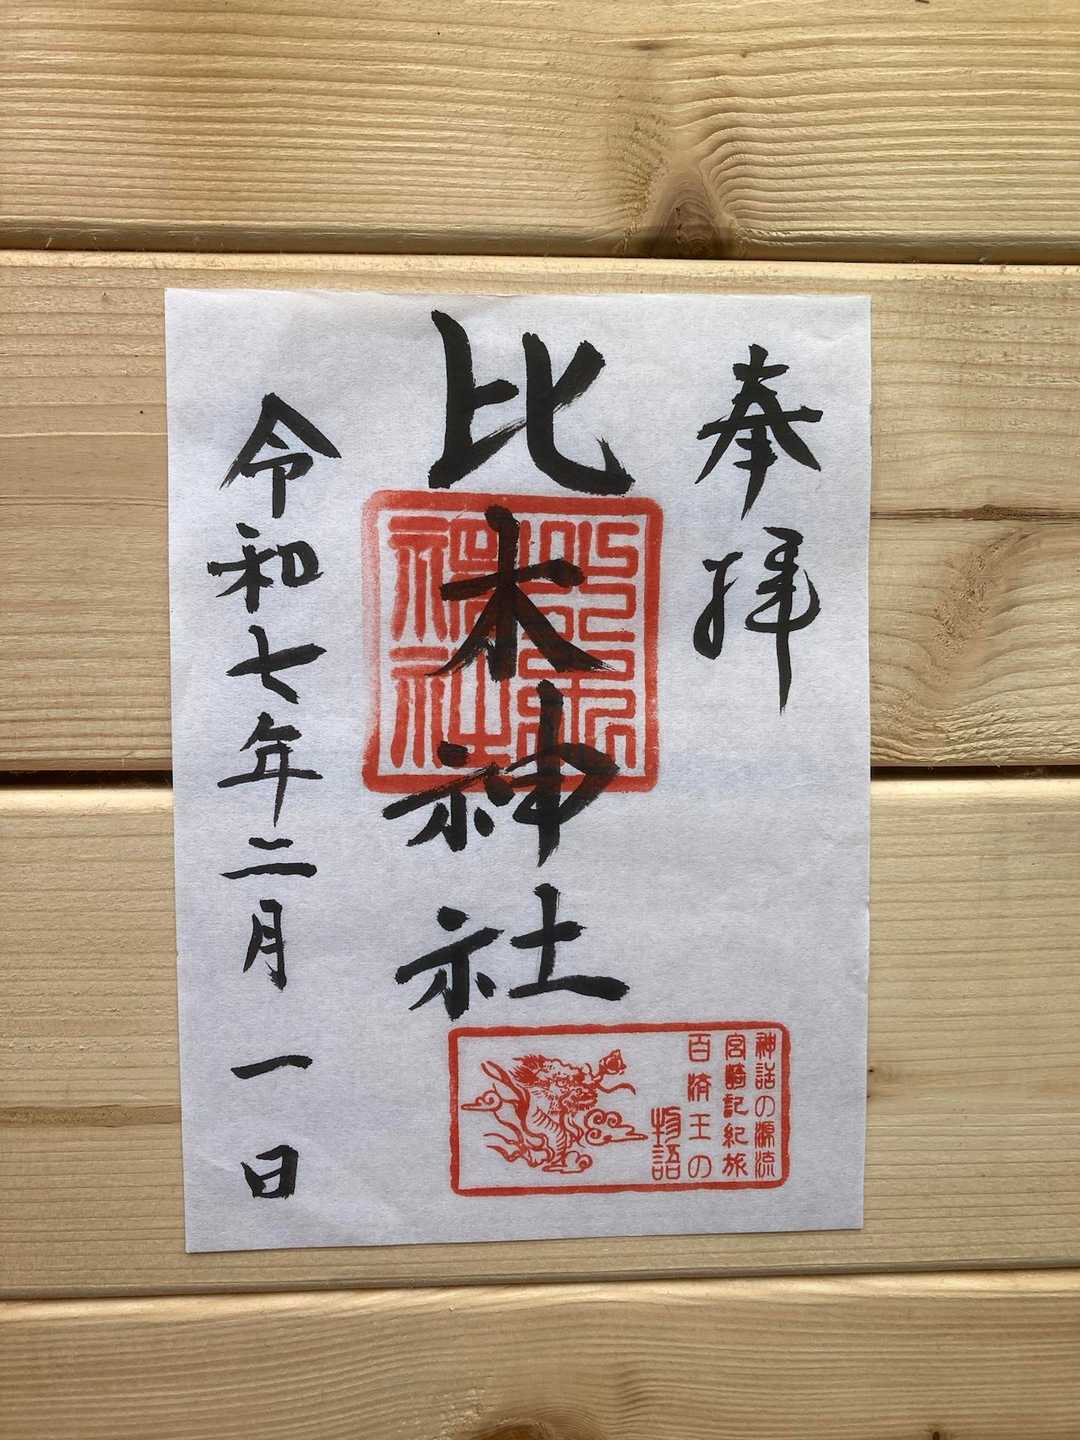 奉拝
比木神社
比木神社
令和七年二月一日
神話の源流
宮崎記紀旅
百済王の
物語